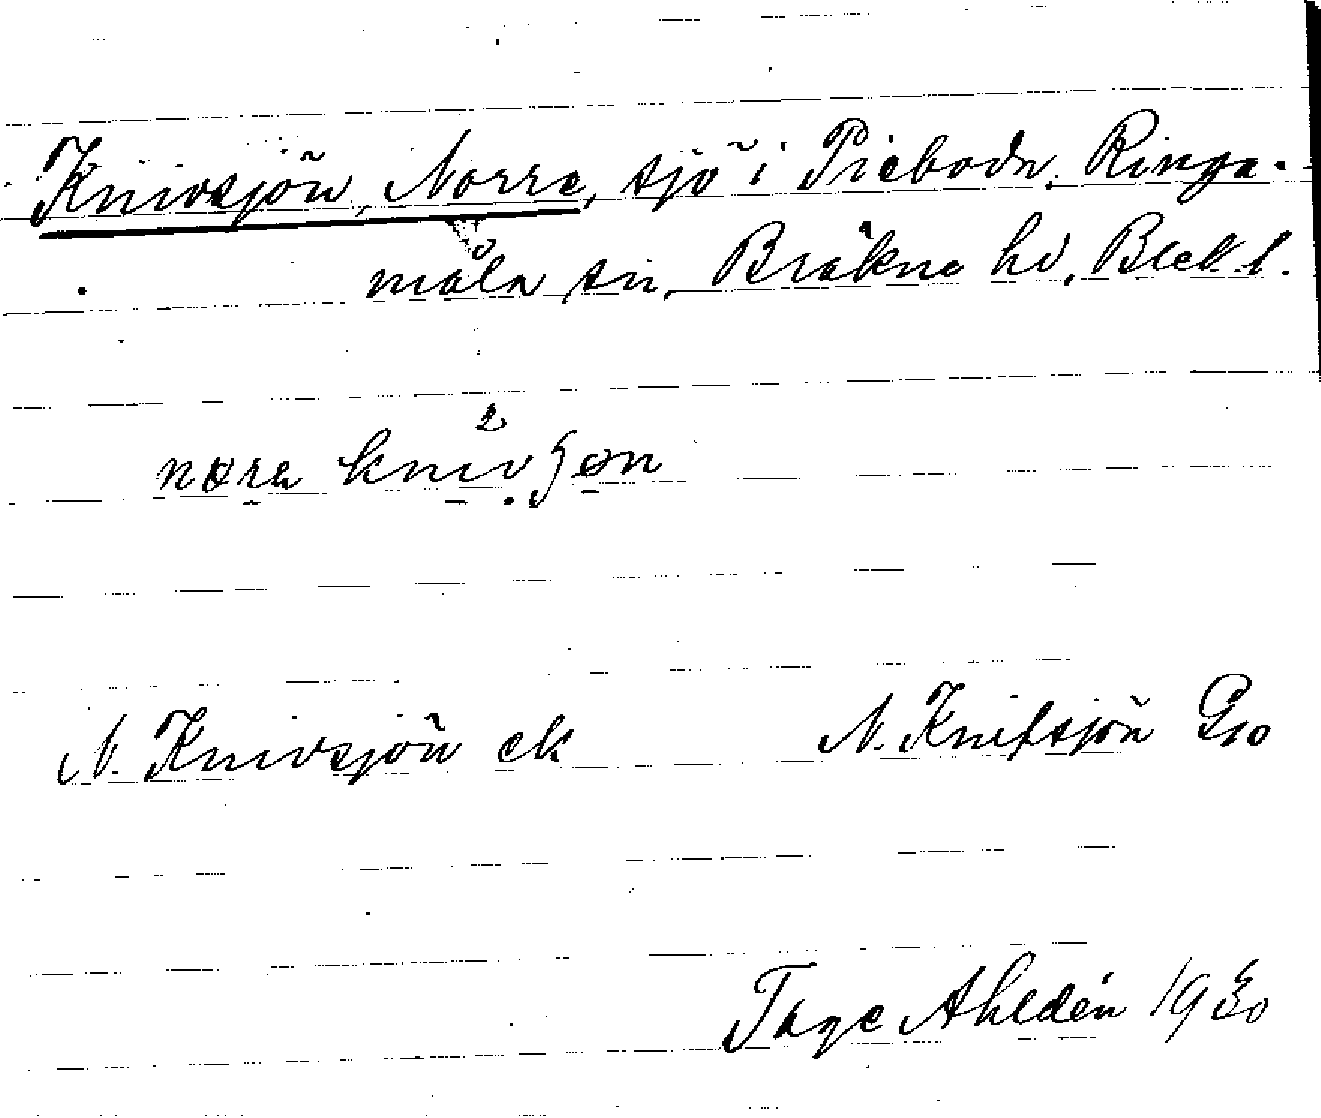 Knivsjön, Norre, sjö i Pieboda, Ringa-
måla sn, Bräkne hd, Blek l.
nøra knivʃøn
N. Knivsjön ek N. Knifsjön Gso
Tage Ahldén 1930